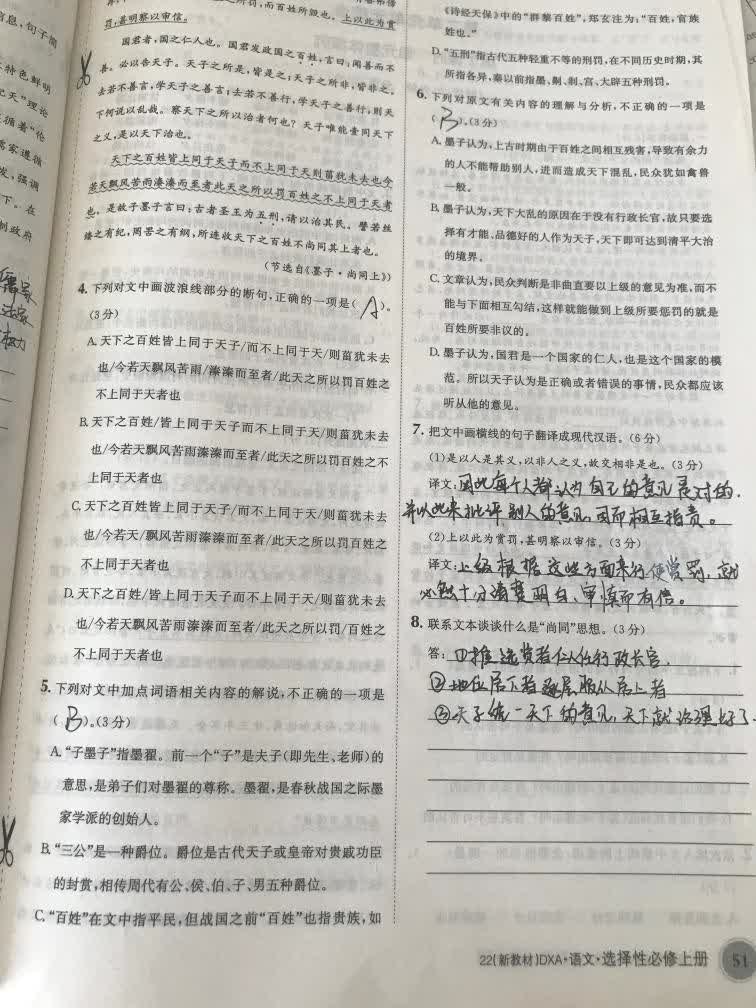 息,句子简
特色鲜明
天”理论
循着“伦
儒家遵循
发,强调
下。在
制政府
之所罚,而百姓所毁也。上以此为赏
罚,甚明察以审信。
国君者,国之仁人也。国君发政国之百姓,言曰:闻善而不
善。必以告天子。天子之所是,皆是之;天子之所非,皆非之。
去若不善言,学天子之善言;去若不善行,学天子之善行,则天
下何说以乱哉。察天下之所以治者何也?天子唯能壹同天下
之义,是以天下治也。
天下之百姓皆上同于天子而不上同于天则菑犹未去也今
若天飘风苦雨溱溱而至者此天之所以罚百姓之不上同于天者
也。是故子墨子言曰:古者圣王为五刑,请以治其民。譬若丝
缕之有纪,罔罟之有纲,所连收天下之百姓不尚同其上者也。
(节选自《墨子·尚同上》)
4. 下列对文中画波浪线部分的断句,正确的一项是( A )。
(3分)
A. 天下之百姓皆上同于天子/而不上同于天/则菑犹未去
也/今若天飘风苦雨/溱溱而至者/此天之所以罚百姓之
不上同于天者也
B. 天下之百姓/皆上同于天子而不上同于天/则菑犹未去
也/今若天飘风苦雨溱溱而至者/此天之所以罚百姓之不
上同于天者也
C. 天下之百姓皆上同于天子/而不上同于天/则菑犹未去
也/今若天/飘风苦雨溱溱而至者/此天之所以罚百姓之
不上同于天者也
D. 天下之百姓/皆上同于天子而不上同于天/则菑犹未去
也/今若天飘风苦雨溱溱而至者/此天之所以罚/百姓之
不上同于天者也
5. 下列对文中加点词语相关内容的解说,不正确的一项是
( B )。(3分)
A.“子墨子”指墨翟。前一个“子”是夫子(即先生、老师)的
意思,是弟子们对墨翟的尊称。墨翟,是春秋战国之际墨
家学派的创始人。
B.“三公”是一种爵位。爵位是古代天子或皇帝对贵戚功臣
的封赏,相传周代有公、侯、伯、子、男五种爵位。
C.“百姓”在文中指平民,但战国之前“百姓”也指贵族,如
《诗经天保》中的“群黎百姓”,郑玄注为:“百姓,官族
姓也。”
D.“五刑”指古代五种轻重不等的刑罚,在不同历史时期,其
所指各异,秦以前指墨、劓、剕、宫、大辟五种刑罚。
6. 下列对原文有关内容的理解与分析,不正确的一项是
( B )。(3分)
A. 墨子认为,上古时期由于百姓之间相互残害,导致有余力
的人不能帮助别人,进而造成天下混乱,民众犹如禽兽
一般。
B. 墨子认为,天下大乱的原因在于没有行政长官,故只要选
择有才能、品德好的人作为天子,天下即可达到清平大治
的境界。
C. 文章认为,民众判断是非曲直要以上级的意见为准,而不
能与下面相互勾结,这样就能做到上级所要惩罚的就是
百姓所要非议的。
D. 墨子认为,国君是一个国家的仁人,也是这个国家的模
范。所以天子认为是正确或者错误的事情,民众都应该
听从他的意见。
7. 把文中画横线的句子翻译成现代汉语。(6分)
(1)是以人是其义,以非人之义,故交相非是也。(3分)
译文:因此每个人都认为自己的意见是对的,
并以此来批评别人的意见,因而相互指责。
(2)上以此为赏罚,甚明察以审信。(3分)
译文:上级根据这些方面来行使赏罚,就
必然十分清楚明白、审慎而有信。
8. 联系本文谈谈什么是“尚同”思想。(3分)
答:①推选贤者仁人任行政长官.
②地位居下者逐层服从居上者
③天子统一天下的意见,天下就治理好了.
22[新教材]DXA·语文·选择性必修上册
51